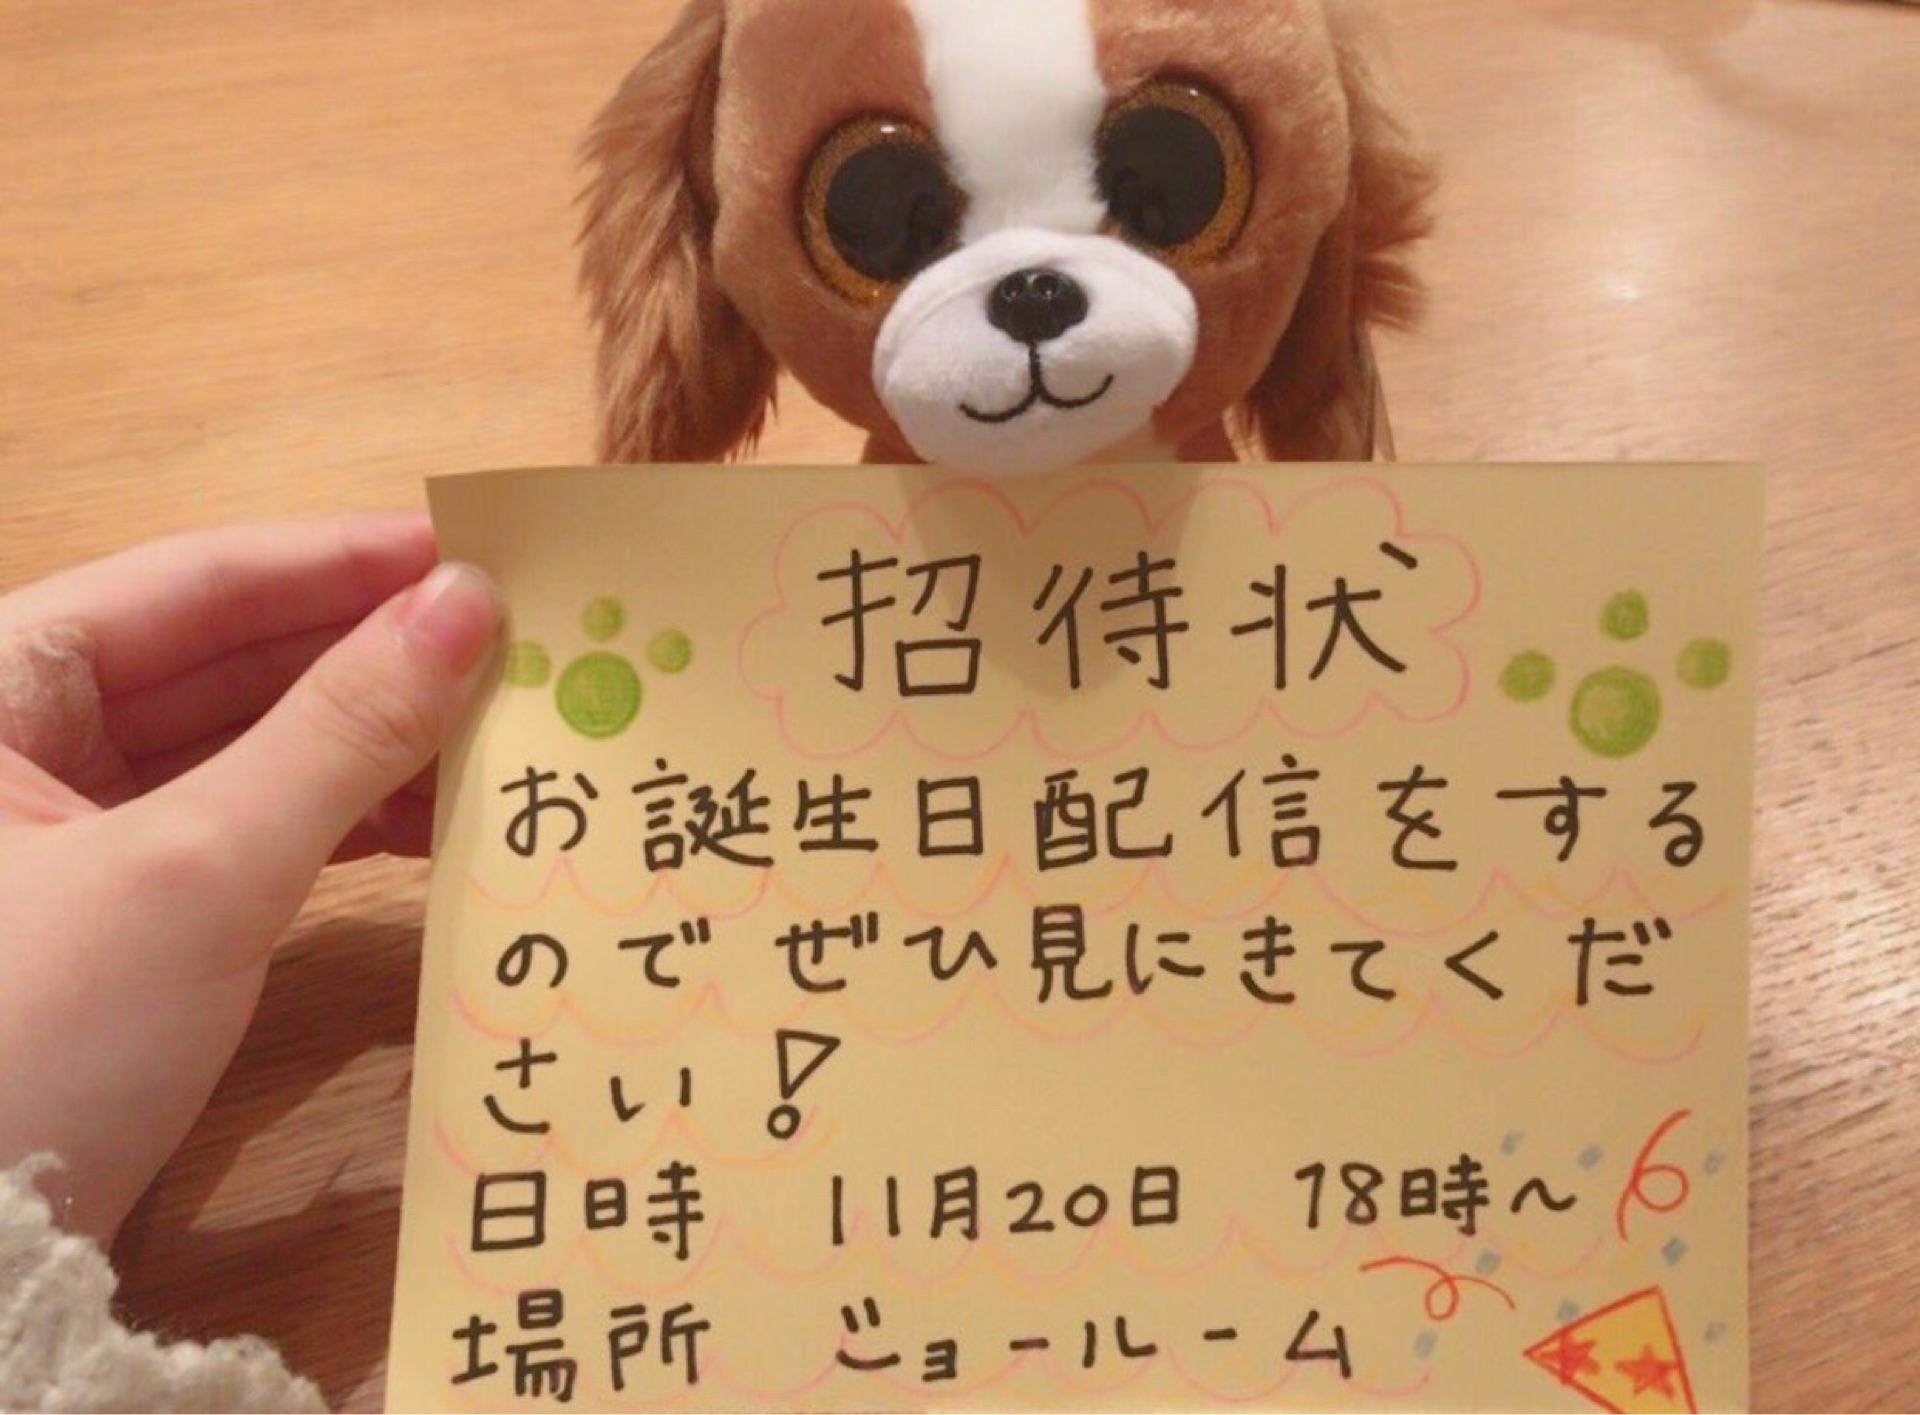 招待状
お誕生日配信をする
のでぜひ見にきてくだ
さい!
日時 11月20日 18時～
場所 ジョールーム